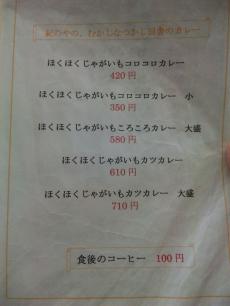 紀のやの、むかしなつかし田舎のカレー
ほくほくじゃがいもコロコロカレー
420円
ほくほくじゃがいもコロコロカレー 小
350円
ほくほくじゃがいもころころカレー 大盛
580円
ほくほくじゃがいもカツカレー
610円
ほくほくじゃがいもカツカレー 大盛
710円
食後のコーヒー 100円